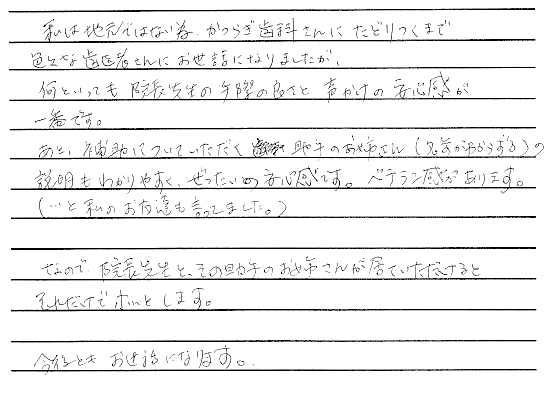 私は地元ではない為、かつらぎ歯科さんにたどりつくまで
色々な歯医者さんにお世話になりましたが、
何といっても院長先生の手際の良さと声かけの安心感が
一番です。
あと、補助についていただく助手のお姉さん（名前がわからずる）の
説明もわかりやすく、ぜったいの安心感です。ベテラン感があります。
（…と私のお友達も言ってました。）
なので、院長先生と、その助手のお姉さんが居ていただけると
それだけでホッとします。
今後ともお世話になります。